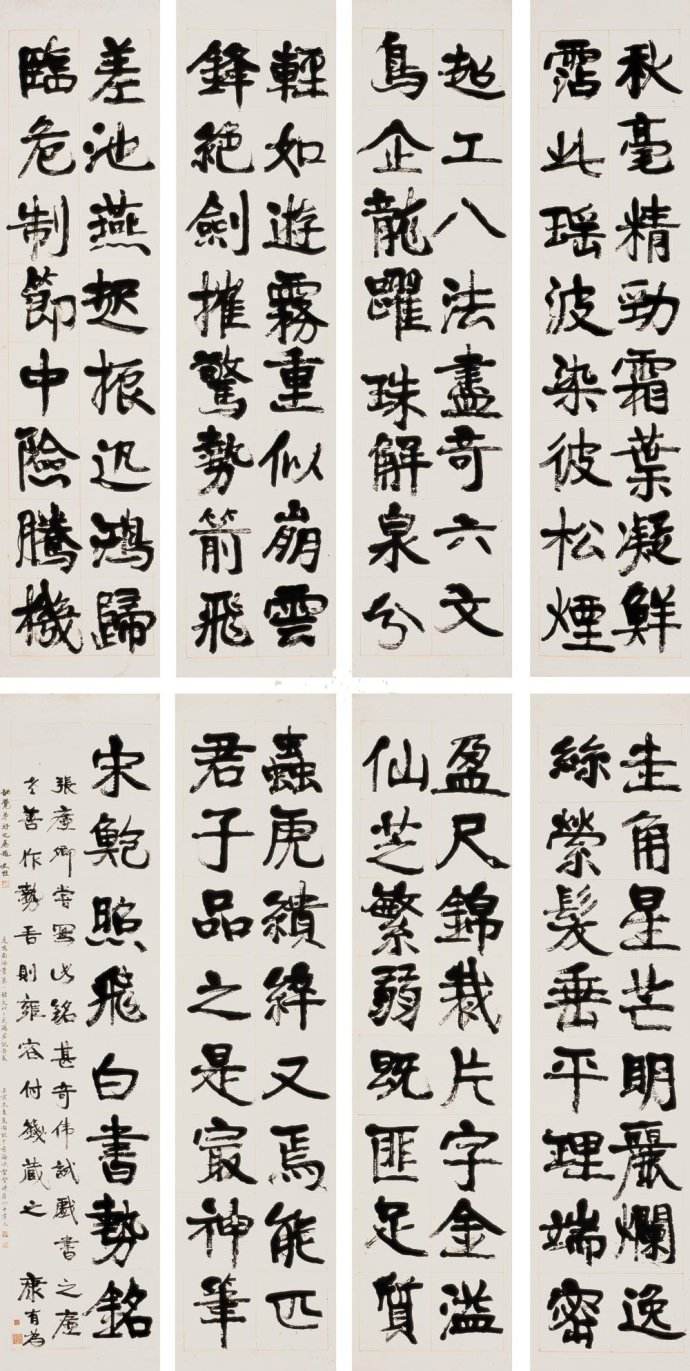 秋毫精勁霜葉凝鮮
霑此瑶波染彼松煙
超工八法盡奇六文
鳥企龍躍珠解泉分
輕如遊霧重似崩雲
鋒絕劍摧驚勢箭飛
差池燕起振迅鴻歸
臨危制節中險騰機
圭角星芒明麗爛逸
絲縈髮垂平理端密
盈尺錦裁片字金溢
仙芝繁弱既匪足質
蟲虎繢綷又焉能匹
君子品之是寂神筆
宋鮑照飛白書勢銘
張廉卿嘗寫此銘甚奇偉試戲書之廉
老善作勢吾則雍容付籛藏之 康有為